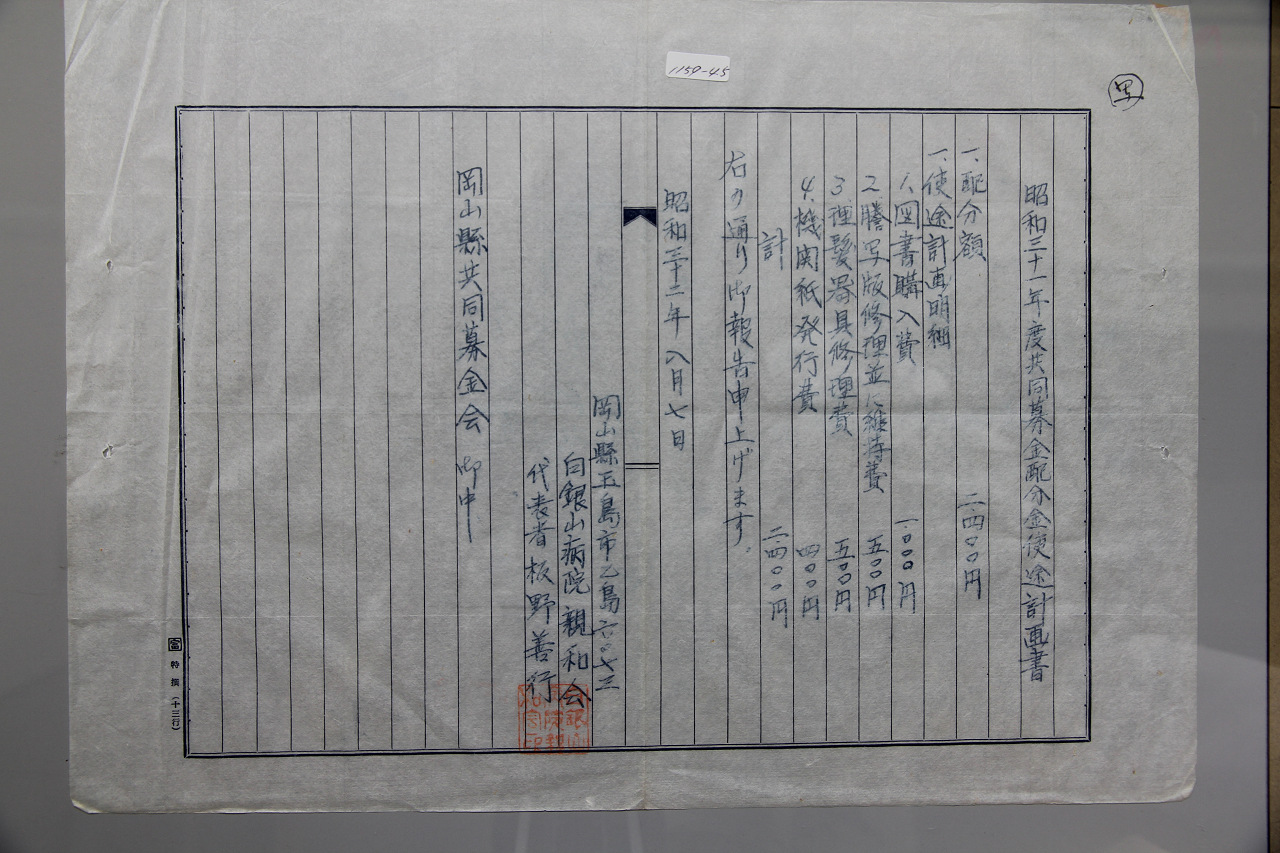 1150-45
写
昭和三十一年度共同募金配分金使途計画書
一、配分額 二、四〇〇円
一、使途計画明細
1、図書購入費 一、〇〇〇円
2 謄写版修理並に維持費 五〇〇円
3 理髪器具修理費 五〇〇円
4、機関紙発行費 四〇〇円
計 二、四〇〇円
右の通り御報告申上げます。
昭和三十二年八月七日
岡山縣玉島市乙島六〇七三
白銀山病院親和会
代表者板野善行
岡山縣共同募金会 御中
富 特撰 (十三行)